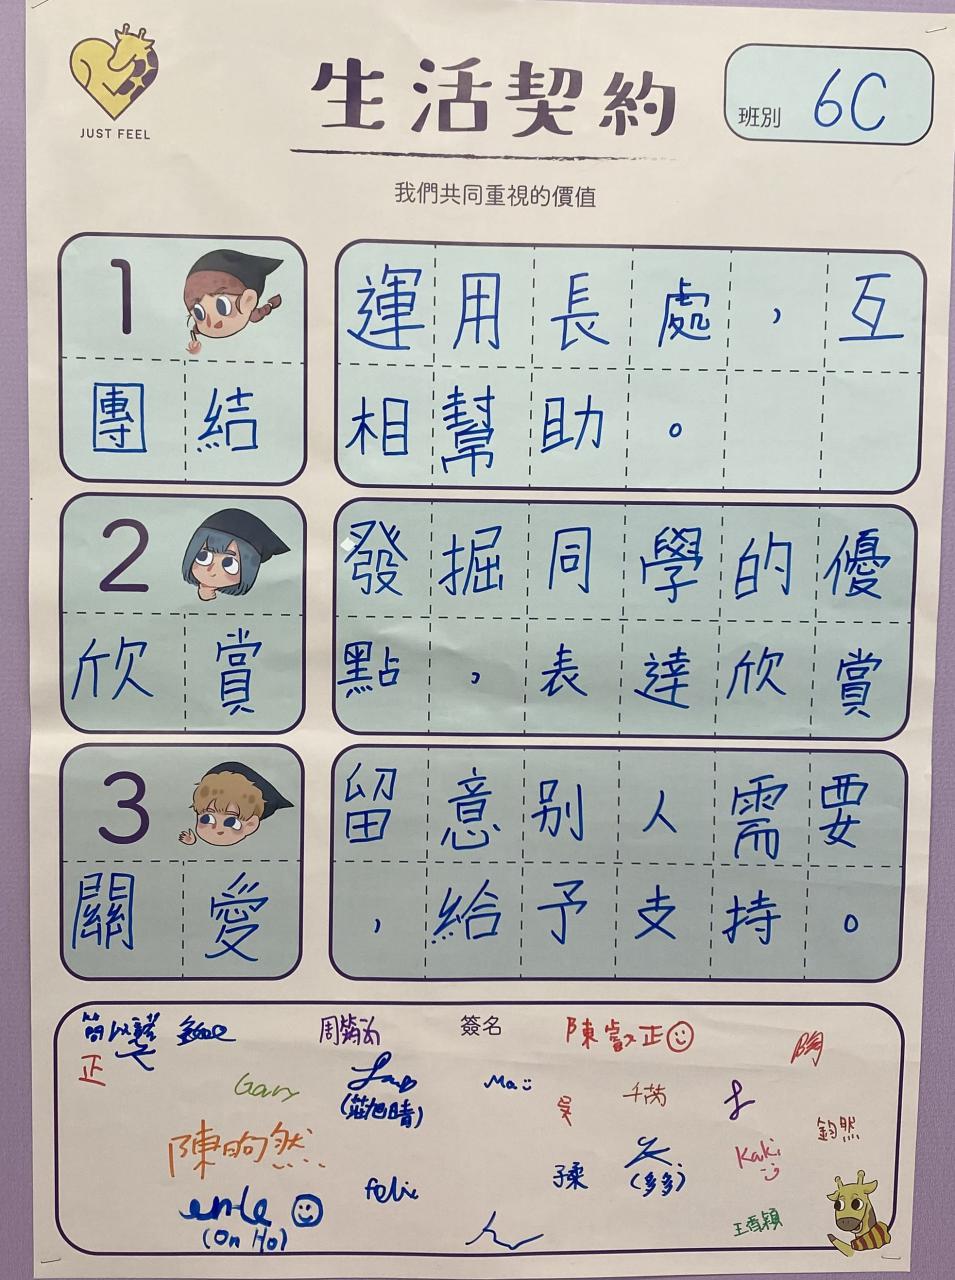 JUST FEEL
生活契約
班別 6C
我們共同重視的價值
1
團結
運用長處，互
相幫助。
2
欣賞
發掘同學的優
點，表達欣賞
3
關愛
留意別人需要
，給予支持。
簽名
陳叡正
正
Gary
Ma
吳
千芮
鈞然
陳昫然
felix
子柔
(多多)
Kaki
(On Ho)